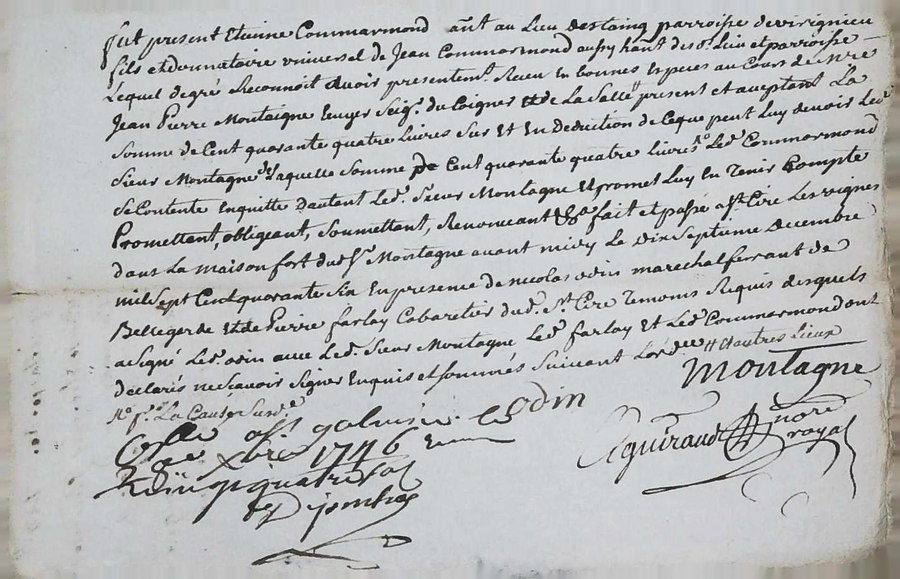 fut present Etienne Commarmond hant au Lieu destaing parroisse de virignieu
fils et donnataire universel de Jean Commarmond aussy hant des.d. Lieu et parroisse
Lequel de gré Reconnoit avoir presentemt. Receu En bonnes Especes au Cours de Nre
Jean Pierre Montaigne Ecuyer Seigr. du Poigner et de La Salle present et aceptant La
somme de Cent quarante quatre Livres Sur Et En deduction de Ceque peut Luy devoir Led.
sieur Montagne de Laquelle somme de Cent quarante quatre Livres Led. Commarmond
se Contente En quitte d'autant Led. Sieur Montagne Et promet Luy En Tenir Compte
Promettant, obligeant, soumettant, Renonceant &a. fait et passé a st. Cire Les vignes
dans La maison fort dud. Sr. Montagne avant midy Le dix septieme decembre
mil sept Cent quarante six En presence de nicolas odin marechal ferrant de
Bellegarde Et de Pierre farlay Cabaretier dud. St. Cire Temoins Requis desquels
a signé Led. odin avec Led. Sieur Montagne Led. farlay Et Led. Commarmond ont
declarés ne scavoir signer Enquis et sommés suivant Lord.ce et autres Lieux
La Cause susd.e
Montagne
odin
Cgnuiraud nore royal
a st galmier le
xbre 1746
quatre sol
Djombes